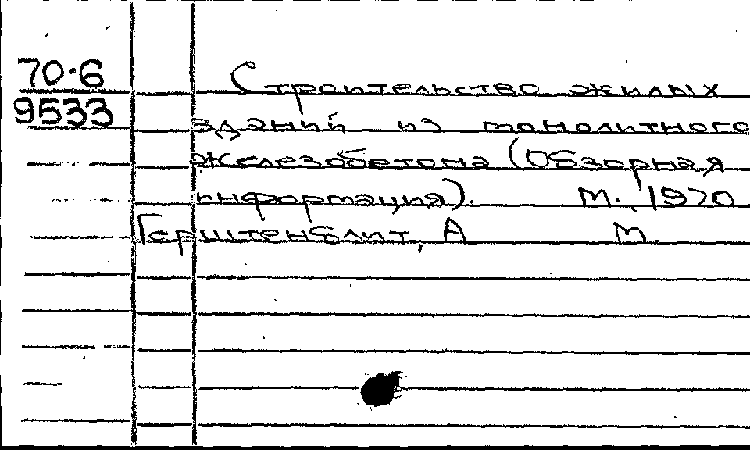 70-6
9533
Строительство жилых
зданий из монолитного
железобетона (Обзорная
информация). М., 1970
Герштенблит, А М.